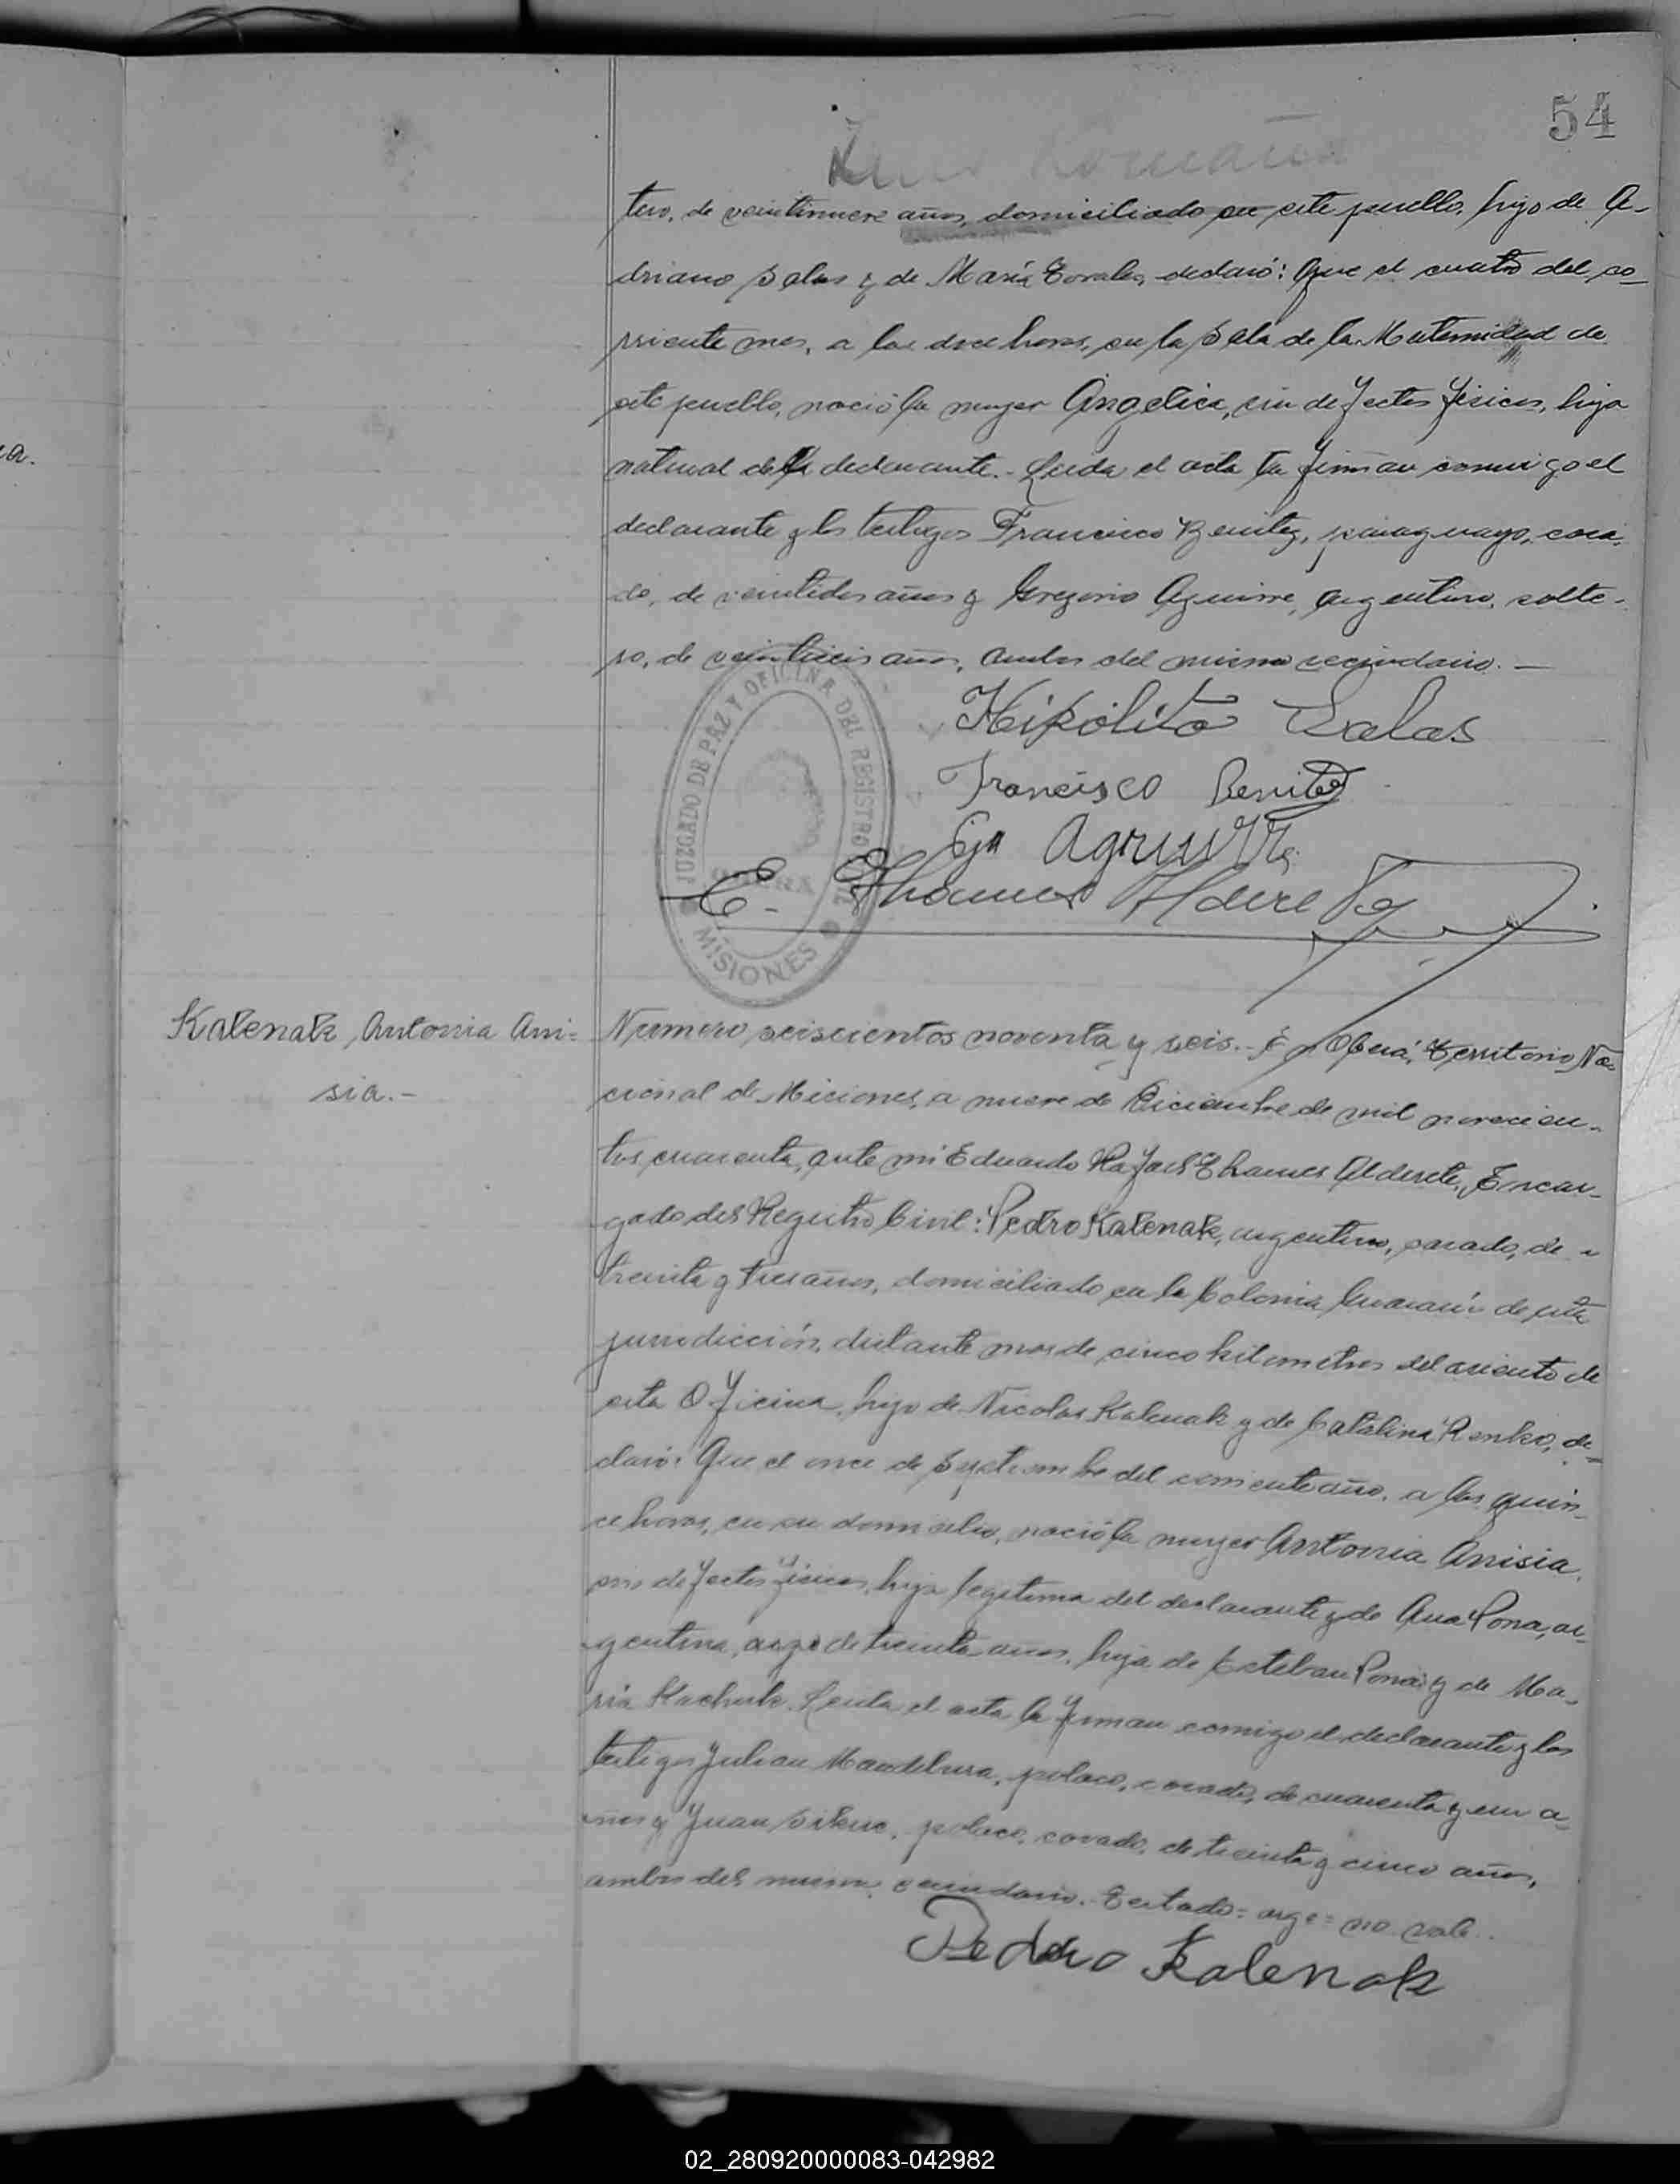 54
tero, de veintinueve años, domiciliado en este pueblo, hijo de A-
driano Salas y de María Torales, declaró: Que el cuatro del co-
rriente mes, a las doce horas, en la Sala de la Maternidad de
este pueblo, nació la mujer Angelica, sin defectos fisicos, hija
natural del declarante.- Leida el acta la firman conmigo el
declarante y los testigos Francisco Benitez, paraguayo, casa-
do, de veintidos años y Gregorio Aguirre, argentino, solte-
ro, de veintiseis años, ambos del mismo vecindario.—
Hipólito Salas
Francisco Benitez
Aguirre
E. Thames Alderete
JUZGADO DE PAZ Y OFICINA DEL REGISTRO CIVIL
OBERA
MISIONES
Kalenak, Antonia Ani=
sia.-
Número seiscientos noventa y seis.- En Oberá, Territorio Na-
cional de Misiones, a nueve de Diciembre de mil novecien-
tos cuarenta, ante mi Eduardo Rafael Thames Alderete, Encar-
gado del Registro Civil: Pedro Kalenak, argentino, casado, de
treinta y tres años, domiciliado en la Colonia Guaraní de esta
jurisdicción, distante mas de cinco kilometros del asiento de
esta Oficina, hijo de Nicolas Kalenak y de Catalina Renko, de-
claró: Que el once de Septiembre del corriente año, a las quin-
ce horas, en su domicilio, nació la mujer Antonia Anisia,
sin defectos fisicos, hija legitima del declarante y de Ana Pona, ar-
gentina, arge de treinta años, hija de Esteban Pona y de Ma-
ria Kachuk. Leida el acta la firman comigo el declarante y los
testigos Julian Mandebura, polaco, casado, de cuarenta y un a-
ños y Juan, polaco, casado, de treinta y cinco años,
ambos del mismo vecindario. Testado= arge= no vale.
Pedro Kalenak
02_280920000083-042982